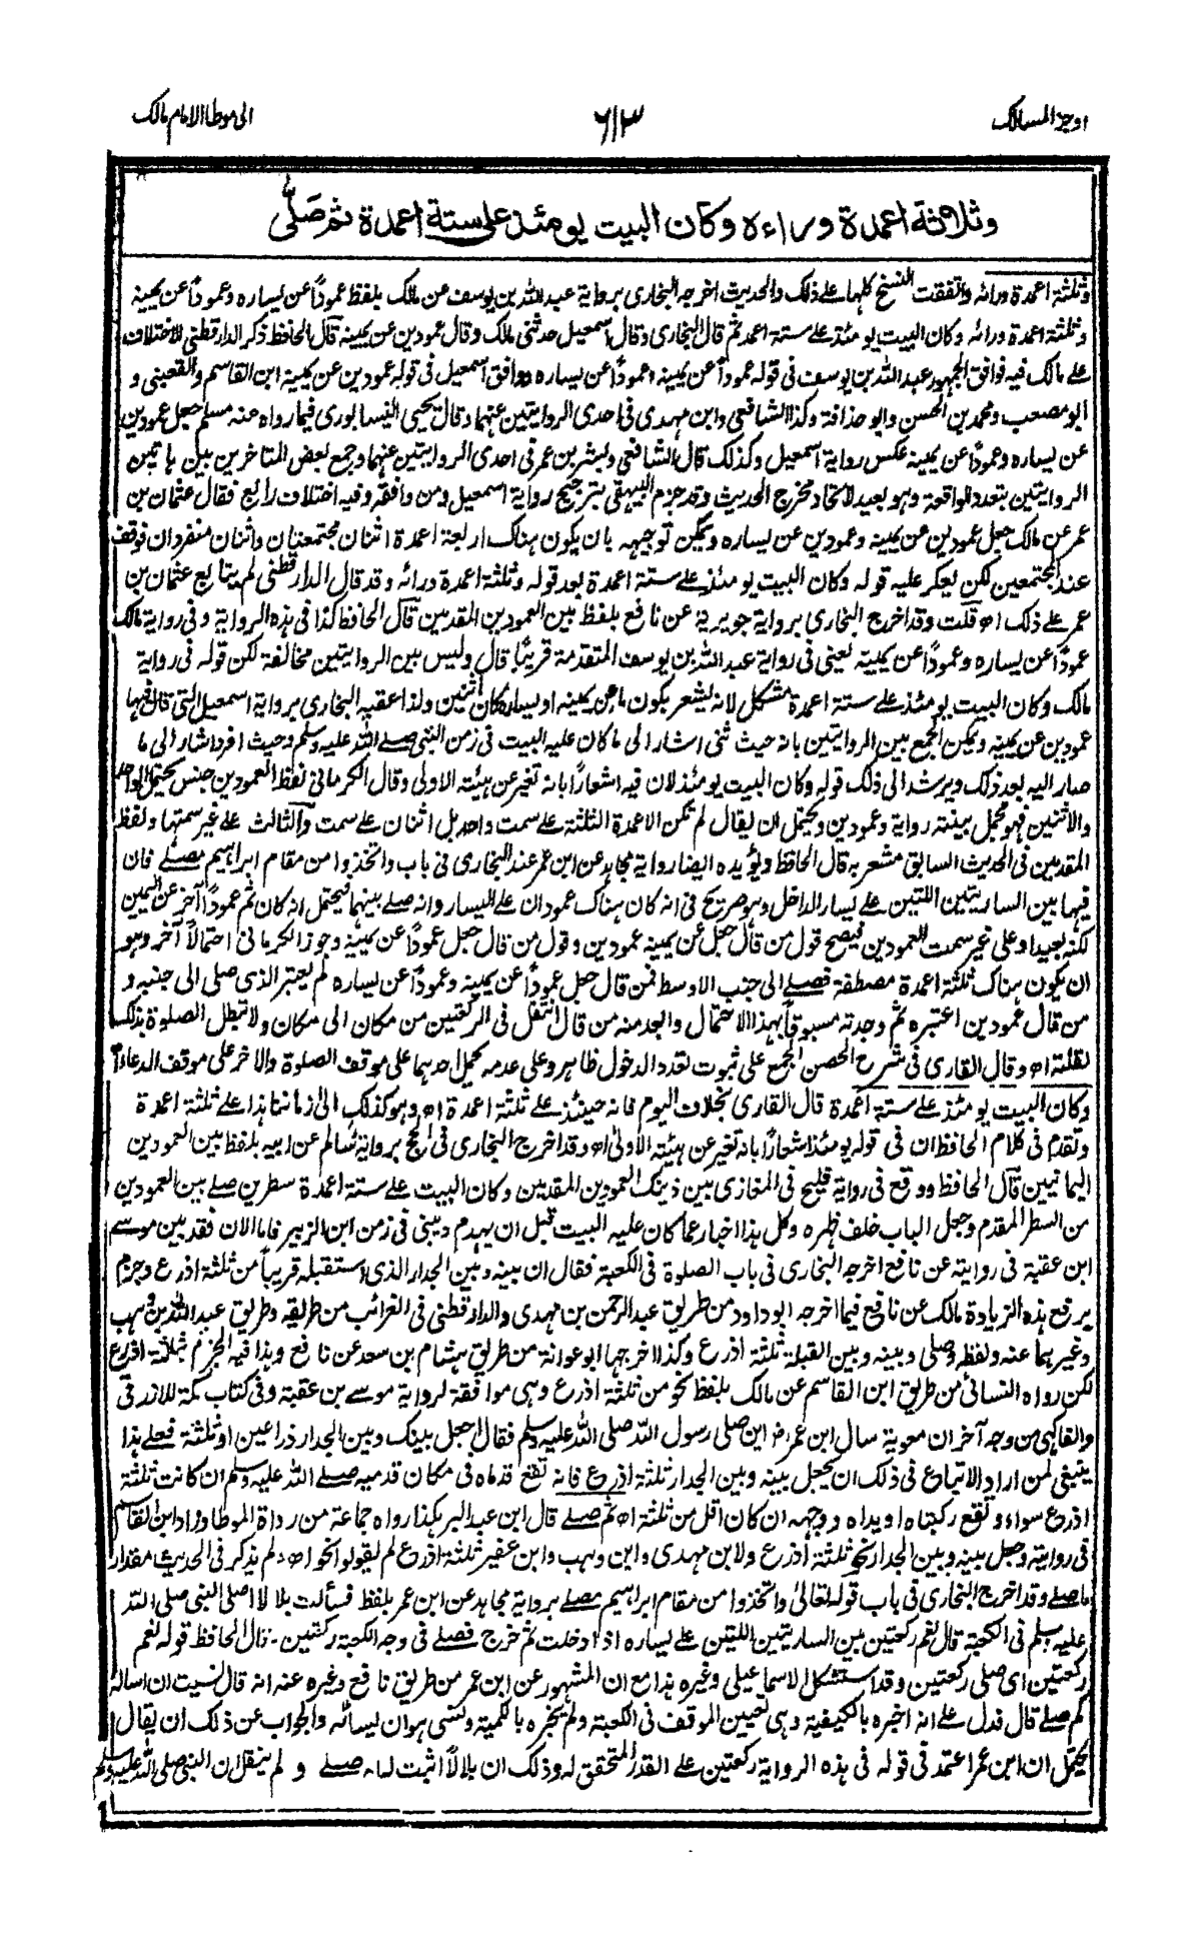 اوجز المسالك
٦١٣
الى موطا الامام مالك
وثلاثة اعمدة وراءه وكان البيت يومئذ على ستة اعمدة ثم صلى
وثلثة اعمدة ورائه واتفقت النسخ كلها على ذلك والحديث اخرجه البخاري برواية عبد الله بن يوسف عن مالك بلفظ عموداً عن يساره وعموداً عن يمينه
وثلثة اعمدة ورائه وكان البيت يومئذ على ستة اعمدة ثم قال البخاري وقال اسمعيل حدثنى مالك وقال عمودين عن يمينه قال الحافظ ذكر الدارقطنى الاختلاف
على مالك فيه فوافق الجمهور عبد الله بن يوسف فى قوله عموداً عن يمينه وعموداً عن يساره ووافق اسمعيل فى قوله عمودين عن يمينه ابن القاسم والقعنبى و
ابو مصعب ومحمد بن الحسن وابو حذافة وكذا الشافعى وابن مهدى فى احدى الروايتين عنهما وقال يحيى النيسابورى فيما رواه عنه مسلم جعل عمودين
عن يساره وعموداً عن يمينه عكس رواية اسمعيل وكذلك قال الشافعى وبشر بن عمر فى احدى الروايتين عنهما وجمع بعض المتاخرين بين هاتين
الروايتين بتعدد الواقعة وهو بعيد لاتحاد مخرج الحديث وقد جزم البيهقى بترجيح رواية اسمعيل ومن وافقه وفيه اختلاف رابع فقال عثمان بن
عمر عن مالك جعل عمودين عن يمينه وعمودين عن يساره ويمكن توجيهه بان يكون هناك اربعة اعمدة اثنان مجتمعتان واثنان منفردان فوقف
عند المجتمعين لكن يعكر عليه قوله وكان البيت يومئذ على ستة اعمدة بعد قوله وثلثة اعمدة ورائه وقد قال الدارقطنى لم يتابع عثمان بن
عمر على ذلك اه قلت وقد اخرج البخارى برواية جويرية عن نافع بلفظ بين العمودين المقدمين قال الحافظ كذا فى هذه الرواية وفى رواية مالك
عموداً عن يساره وعموداً عن يمينه يعنى فى رواية عبد الله بن يوسف المتقدمة قريباً قال وليس بين الروايتين مخالفة لكن قوله فى رواية
مالك وكان البيت يومئذ على ستة اعمدة مشكل لانه يشعر بكون ما عن يمينه او يساره كان اثنين ولذا عقبه البخارى برواية اسمعيل التى قال فيها
عمودين عن يمينه ويمكن الجمع بين الروايتين بانه حيث ثنى اشار الى ما كان عليه البيت فى زمن النبى صلى الله عليه وسلم وحيث افرد اشار الى ما
صار اليه بعد ذلك ويرشد الى ذلك قوله وكان البيت يومئذ لان فيه اشعاراً بانه تغير عن هيئته الاولى وقال الكرمانى لفظ العمودين جنس يحتمل الواحد
والاثنين فهو مجمل بينته رواية وعمودين ويحتمل ان يقال لم تكن الاعمدة الثلثة على سمت واحد بل اثنان على سمت والثالث على غير سمتها ولفظ
المقدمين فى الحديث السابق مشعر به قال الحافظ ويؤيده ايضا رواية مجاهد عن ابن عمر عند البخارى فى باب واتخذوا من مقام ابراهيم مصلى فان
فيها بين الساريتين اللتين على يسار الداخل وهو صريح فى انه كان هناك عمودان على اليسار وانه صلى بينهما فيحتمل انه كان ثم عموداً آخر عن اليمين
لكنه بعيد او على غير سمت العمودين فيصح قول من قال جعل عن يمينه عمودين وقول من قال جعل عموداً عن يمينه وجوز الكرمانى احتمالاً آخر وهو
ان يكون هناك ثلثة اعمدة مصطفة فصلى الى جنب الاوسط فمن قال جعل عموداً عن يمينه وعموداً عن يساره لم يعتبر الذى صلى الى جنبه و
من قال عمودين اعتبره ثم وجدته مسبوقاً بهذا الاحتمال وابعد منه من قال انتقل فى الركعتين من مكان الى مكان ولا تبطل الصلوة بذلك
لقلته اه وقال القارى فى شرح الحصن الجمع على ثبوت تعدد الدخول ظاهر وعلى عدمه يحمل احدهما على موقف الصلوة والاخر على موقف الدعاء
وكان البيت يومئذ على ستة اعمدة قال القارى بخلاف اليوم فانه حينئذ على ثلثة اعمدة اه وهو كذلك الى زماننا هذا على ثلثة اعمدة
وتقدم فى كلام الحافظ ان فى قوله يومئذ اشعاراً بانه تغير عن هيئته الاولى اه وقد اخرج البخارى فى الحج برواية سالم عن ابيه بلفظ بين العمودين
اليمانيين قال الحافظ ووقع فى رواية فليح فى المغازى بين ذينك العمودين المقدمين وكان البيت على ستة اعمدة سطرين صلى بين العمودين
من السطر المقدم وجعل الباب خلف ظهره وكل هذا اخبار عما كان عليه البيت قبل ان يهدم ويبنى فى زمن ابن الزبير فاما الان فقد بين موسى
ابن عقبة فى روايته عن نافع اخرجه البخارى فى باب الصلوة فى الكعبة فقال ان بينه وبين الجدار الذى استقبله قريباً من ثلثة اذرع وجزم
برفع هذه الزيادة مالك عن نافع فيما اخرجه ابو داود من طريق عبد الرحمن بن مهدى والدارقطنى فى الغرائب من طريقه وطريق عبد الله بن وهب
وغيرهما عنه ولفظه وصلى وبينه وبين القبلة ثلثة اذرع وكذا اخرجها ابو عوانة من طريق هشام بن سعد عن نافع وهذا فيه الجزم بثلاثة اذرع
لكن رواه النسائى من طريق ابن القاسم عن مالك بلفظ نحو من ثلثة اذرع وهى موافقة لرواية موسى بن عقبة وفى كتاب مكة للازرقى
والفاكهى من وجه آخر ان معوية سال ابن عمر اين صلى رسول الله صلى الله عليه وسلم فقال اجعل بينك وبين الجدار ذراعين او ثلثة فعلى هذا
ينبغى لمن اراد الاتباع فى ذلك ان يجعل بينه وبين الجدار ثلثة اذرع فانه تقع قدماه فى مكان قدميه صلى الله عليه وسلم ان كانت ثلثة
اذرع سواء وتقع ركبتاه او يداه ووجهه ان كان اقل من ثلثة اه ثم صلى قال ابن عبد البر هكذا رواه جماعة من رواة الموطا وزاد ابن القاسم
فى روايته وجعل بينه وبين الجدار نحو ثلثة اذرع ولابن مهدى وابن وهب وابن عفير ثلثة اذرع لم يقولوا نحو اه ولم يذكر فى الحديث مقدار
ما صلى وقد اخرج البخارى فى باب قوله تعالى واتخذوا من مقام ابراهيم مصلى برواية مجاهد عن ابن عمر بلفظ فسألت بلالا اصلى النبى صلى الله
عليه وسلم فى الكعبة قال نعم ركعتين بين الساريتين اللتين على يساره اذا دخلت ثم خرج فصلى فى وجه الكعبة ركعتين۔ قال الحافظ قوله نعم
ركعتين اى صلى ركعتين وقد استشكل الاسماعيلى وغيره هذا مع ان المشهور عن ابن عمر من طريق نافع وغيره عنه انه قال نسيت ان اساله
كم صلى قال فدل على انه اخبره بالكيفية وهى تعيين الموقف فى الكعبة ولم يخبره بالكمية ونسى هو ان يسأله والجواب عن ذلك ان يقال
يحتمل ان ابن عمر اعتمد فى قوله فى هذه الرواية ركعتين على القدر المتحقق له وذلك ان بلالاً اثبت له انه صلى ولم ينقل ان النبى صلى الله عليه وسلم